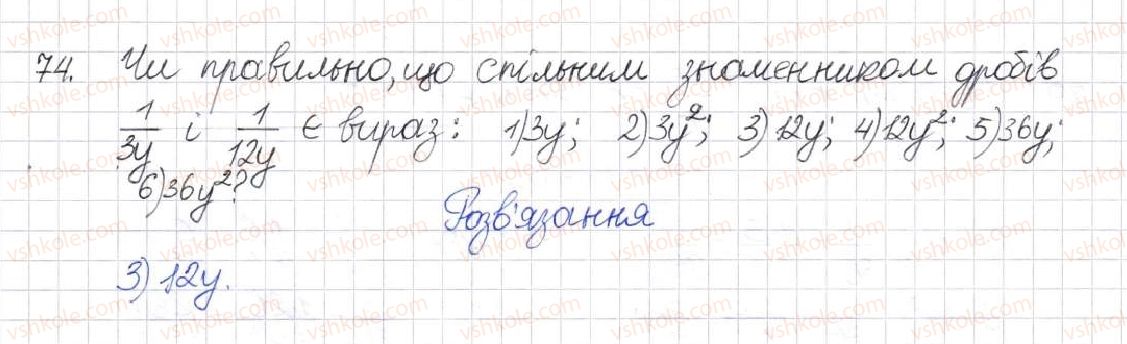 74. Чи правильно, що спільним знаменником дробів
1/3y і 1/12y є вираз: 1) 3y; 2) 3y²; 3) 12y; 4) 12y²; 5) 36y;
6) 36y²?
Розв'язання
3) 12y.